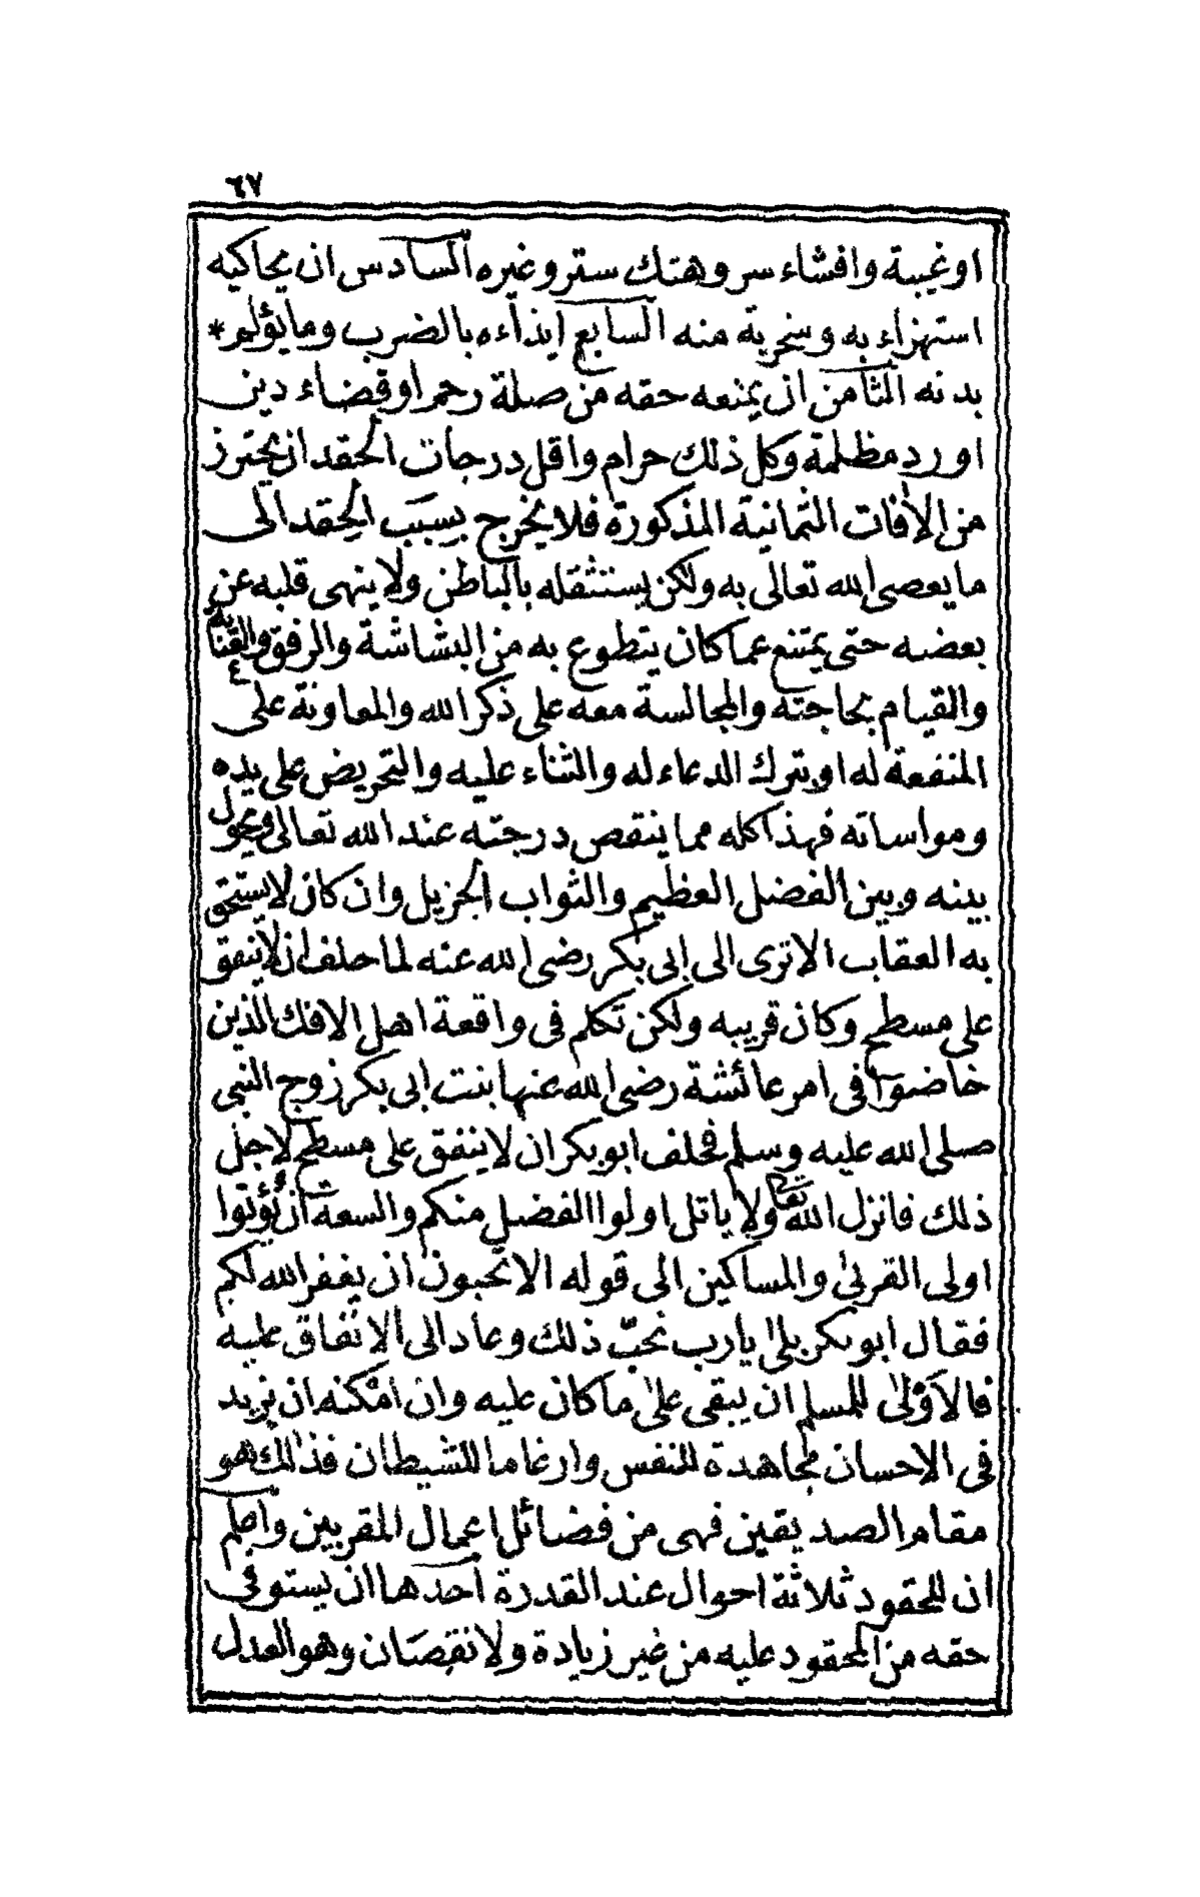 ٦٧
او غيبة وافشاء سر وهتك ستر وغيره السادس ان يحاكيه
استهزاء به وسخرية منه السابع ايذاءه بالضرب وما يؤلم *
بدنه الثامن ان يمنعه حقه من صلة رحم او قضاء دين
او رد مظلمة وكل ذلك حرام واقل درجات الحقد ان يحترز
من الافات الثمانية المذكورة فلا يخرج بسبب الحقد الى
ما يعصى الله تعالى به ولكن يستثقله بالباطن ولا ينهى قلبه عن
بعضه حتى يمتنع عما كان يتطوع به من البشاشة والرفق والعناية
والقيام بحاجته والمجالسة معه على ذكر الله والمعاونة على
المنفعة له او بترك الدعاء له والثناء عليه والتحريض على يده
ومواساته فهذا كله مما ينقص درجته عند الله تعالى ويحول
بينه وبين الفضل العظيم والثواب الجزيل وان كان لا يستحق
به العقاب الا ترى الى ابى بكر رضى الله عنه لما حلف ان لا ينفق
على مسطح وكان قريبه ولكن تكلم فى واقعة اهل الافك الذين
خاضوا فى امر عائشة رضى الله عنها بنت ابى بكر زوج النبى
صلى الله عليه وسلم فحلف ابو بكر ان لا ينفق على مسطح لاجل
ذلك فانزل الله تعالى ولا ياتل اولوا الفضل منكم والسعة أن يُؤتوا
اولى القربىٰ والمساكين الى قوله الا تحبون ان يغفر الله لكم
فقال ابو بكر بلىٰ يا رب نحبّ ذلك وعاد الى الانفاق عليه
فالاَوْلىٰ للمسلم ان يبقى علىٰ ما كان عليه وان امْكنه ان يزيد
فى الاحسان مجاهدة للنفس وارغاما للشيطان فذلك هو
مقام الصديقين فهى من فضائل اعمال المقربين واعلم
ان للمحقود ثلاثة احوال عند القدرة احدها ان يستوفى
حقه من المحقود عليه من غير زيادة ولا نقصَان وهو العدل